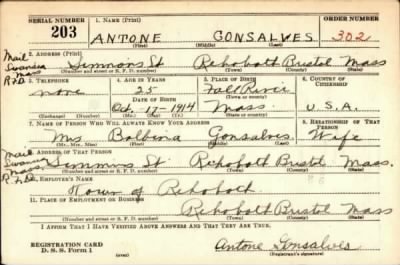 SERIAL NUMBER 1. NAME (Print) ORDER NUMBER
203 ANTONE GONSALVES 302
(First) (Middle) (Last)
Mail Swansea Mass R.F.D.
2. ADDRESS (Print)
Simmons St Rehoboth Bristol Mass
(Number and street or R. F. D. number) (Town) (County) (State)
3. TELEPHONE 4. AGE IN YEARS 5. PLACE OF BIRTH 6. COUNTRY OF CITIZENSHIP
none 25 Fall River
DATE OF BIRTH (Town or county)
Oct. 17-1914 Mass. U.S.A.
(Exchange) (Number) (Mo.) (Day) (Yr.) (State or country)
7. NAME OF PERSON WHO WILL ALWAYS KNOW YOUR ADDRESS 8. RELATIONSHIP OF THAT PERSON
Mrs Balbina Gonsalves Wife
(Mr., Mrs., Miss) (First) (Middle) (Last)
Mail Swansea Mass R.F.D.
9. ADDRESS OF THAT PERSON
Simmons St Rehoboth Bristol Mass.
(Number and street or R. F. D. number) (Town) (County) (State)
10. EMPLOYER'S NAME
Town of Rehoboth
11. PLACE OF EMPLOYMENT OR BUSINESS
Rehoboth Bristol Mass
(Number and street or R. F. D. number) (Town) (County) (State)
I AFFIRM THAT I HAVE VERIFIED ABOVE ANSWERS AND THAT THEY ARE TRUE.
REGISTRATION CARD
D. S. S. Form 1 (over) Antone Gonsalves
(Registrant's signature)